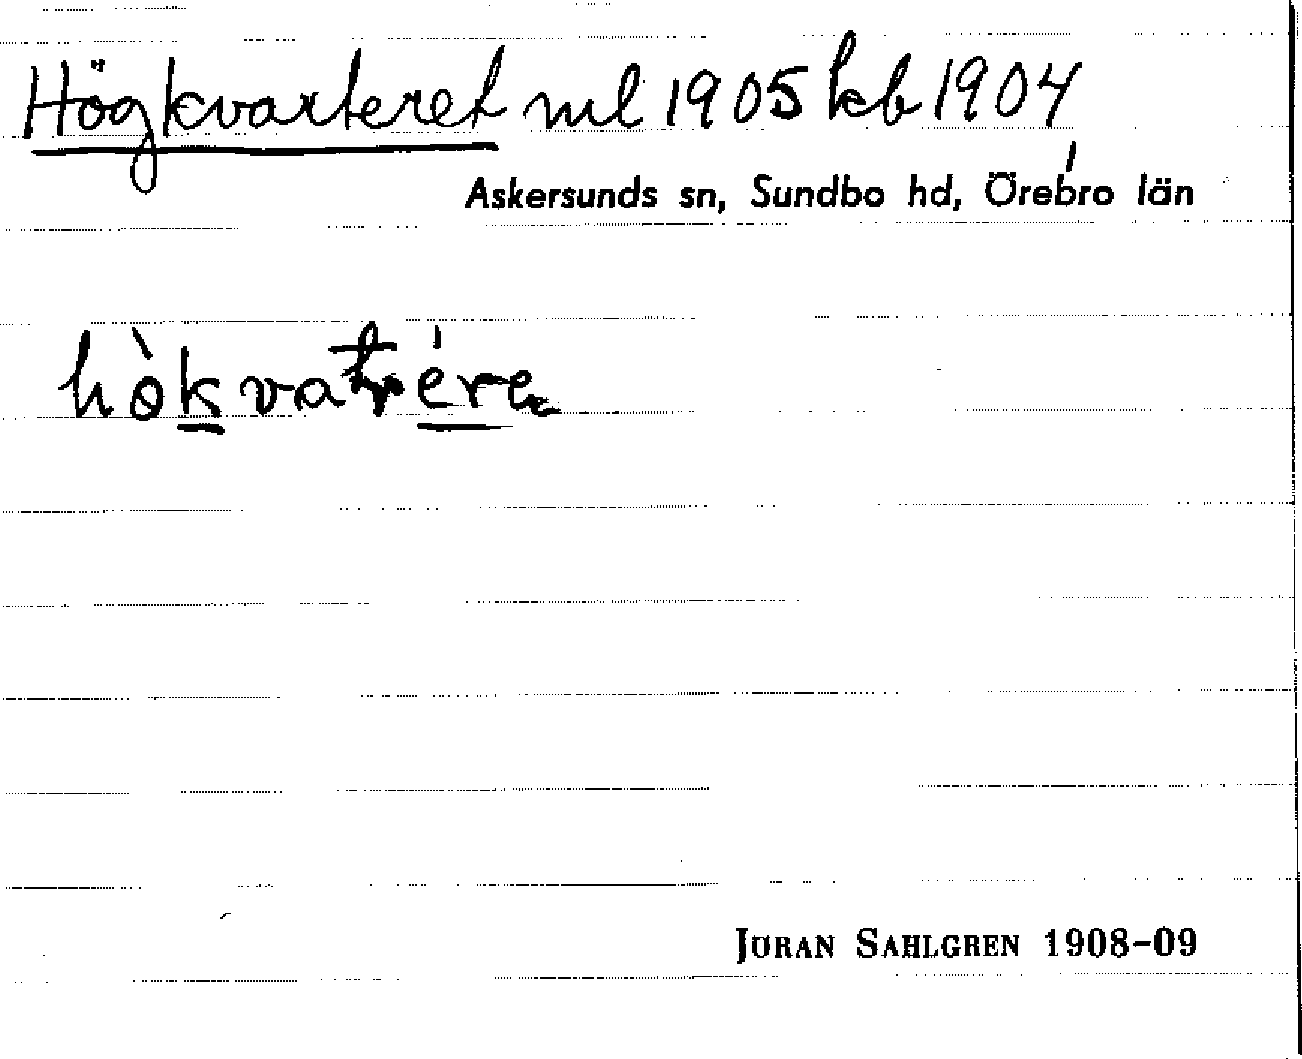 Högkvarteret ml 1905 kb 1904
Askersunds sn, Sundbo hd, Örebro län
JÖRAN SAHLGREN 1908-09